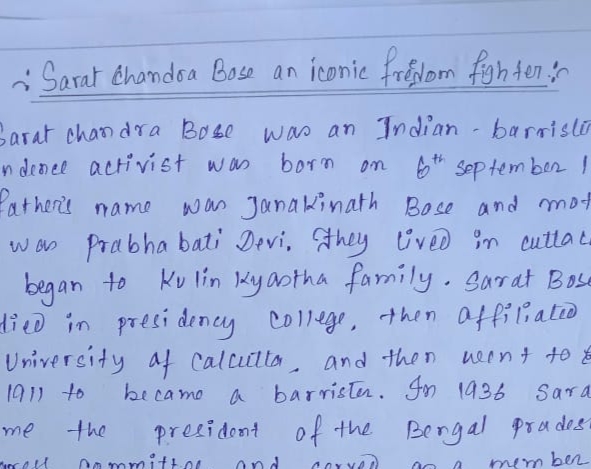 Sarat Chandra Bose an iconic freedom fighter
Sarat chandra Bose was an Indian - barriste
ndence activist was born on 6th september 1
father's name was Janakinath Bose and mot
was Prabhabati Devi. They lived in cuttac
began to Kulin Kyastha family. Sarat Bose
died in presidency college, then affiliated
University of Calcutta, and then went to
1911 to became a barrister. In 1936 Sara
me the president of the Bengal prades
committee and served as a member